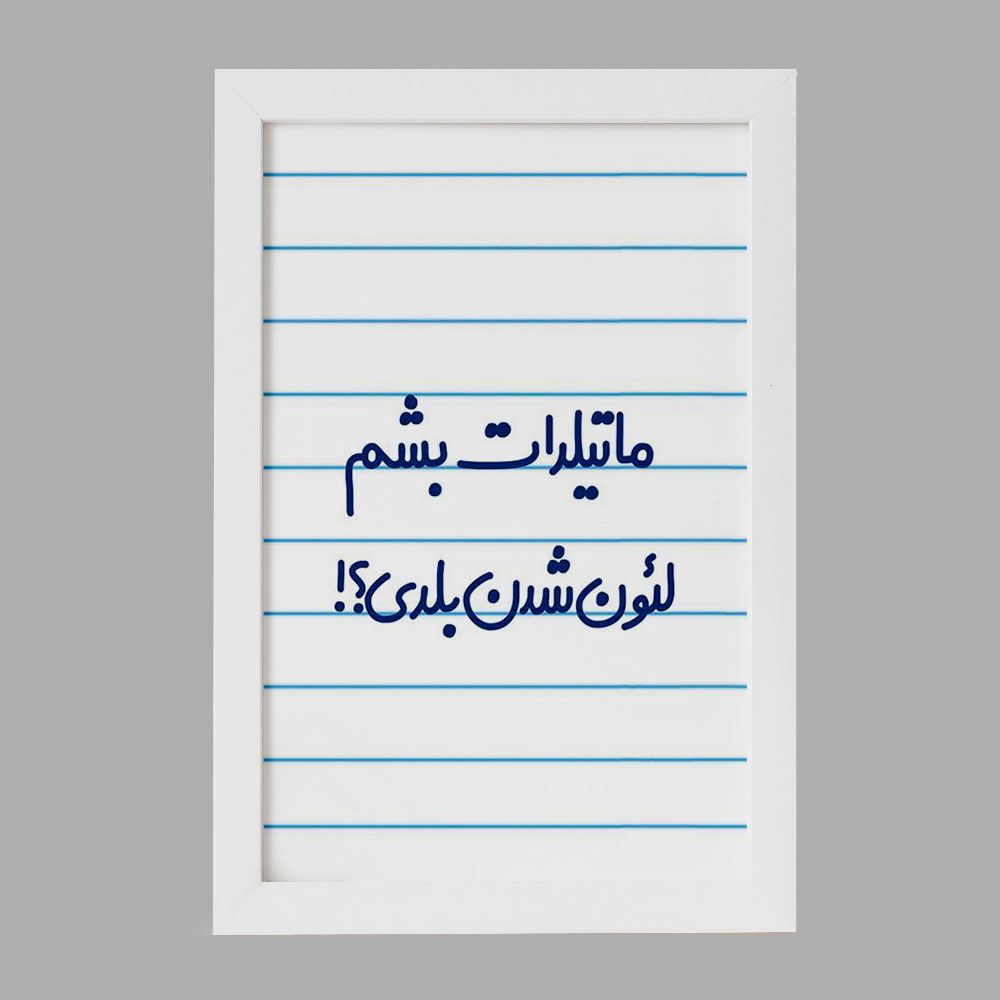 ماتیلدات بشم
لئون شدن بلدی؟!